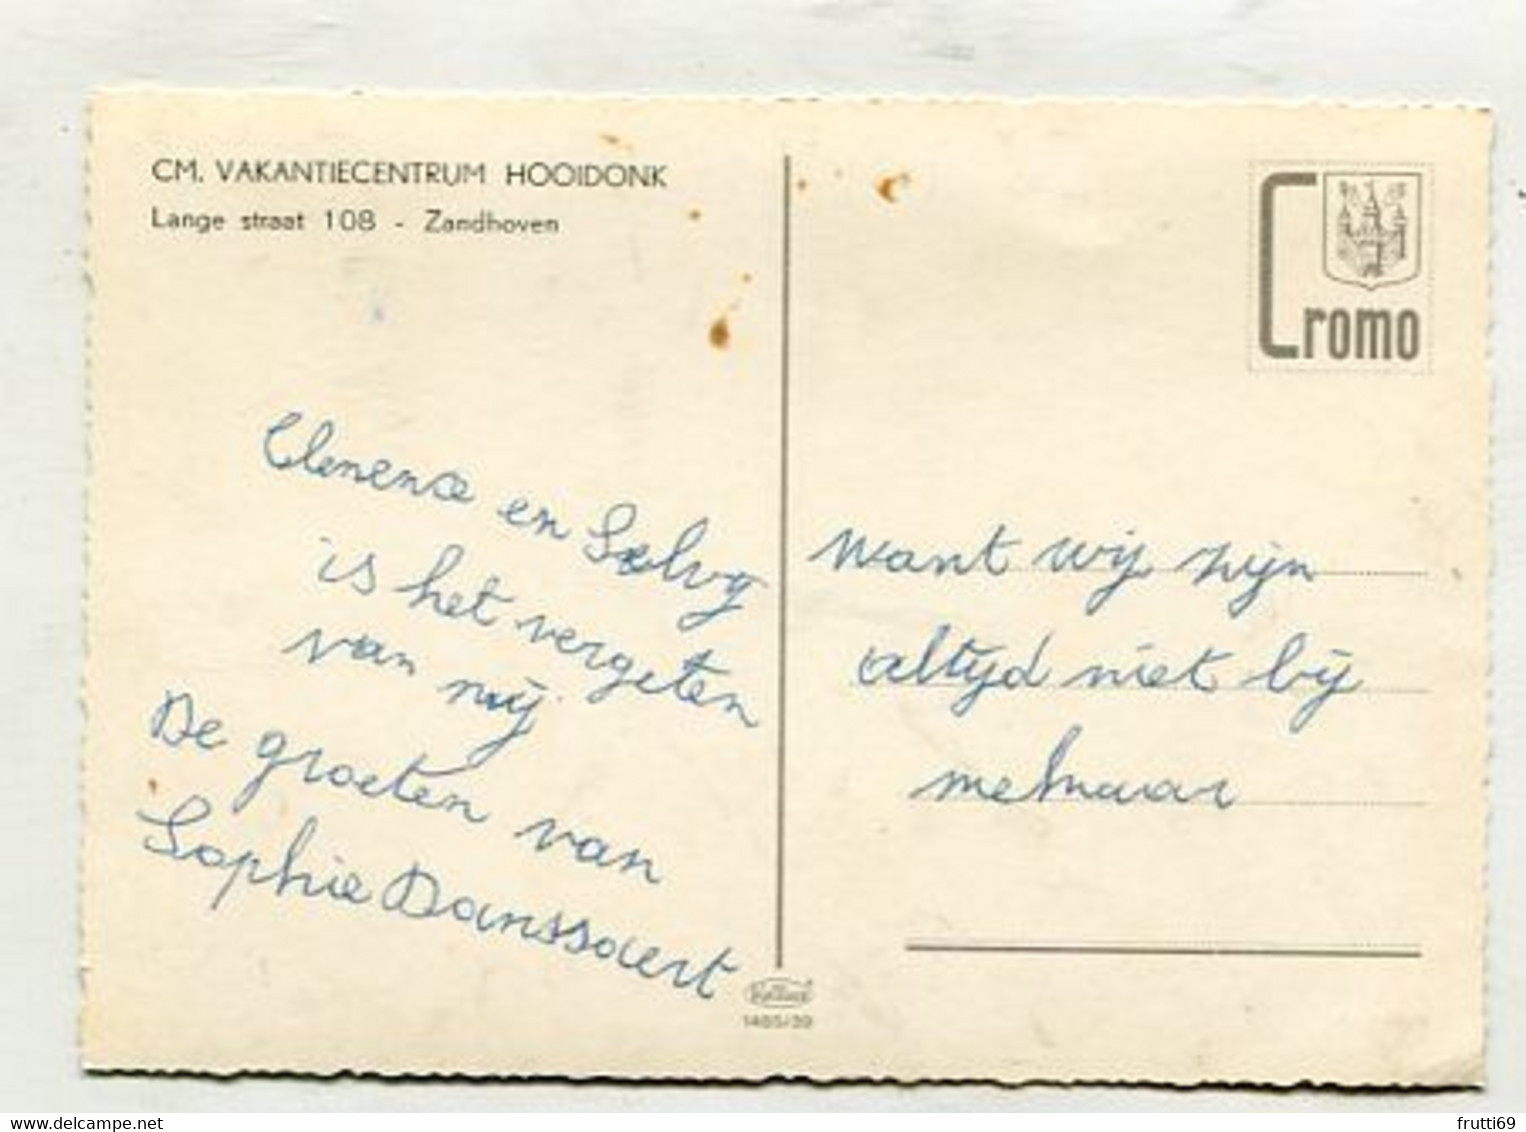 CM. VAKANTIECENTRUM HOOIDONK
Lange straat 108 - Zandhoven
Cromo
Clemence en Solvy
is het vergeten
van mij.
De groeten van
Sophie Danssaert
want wij zijn
altyd niet bij
melnaar
1465/39
frutti69